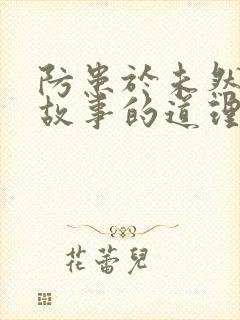 防患於未然
故事的道理
花蕾兒